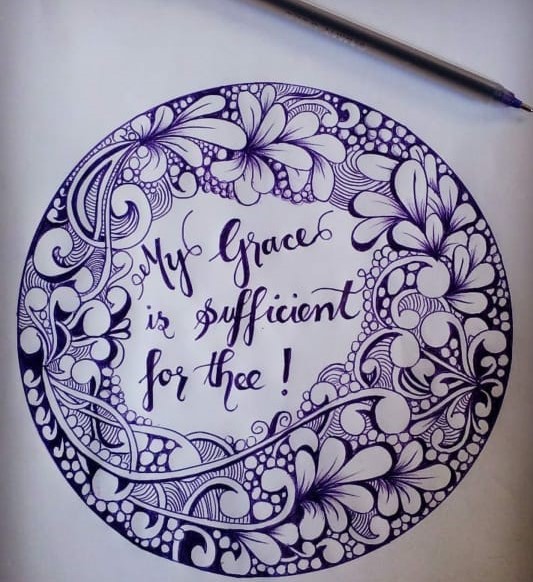 My Grace
is sufficient
for thee !